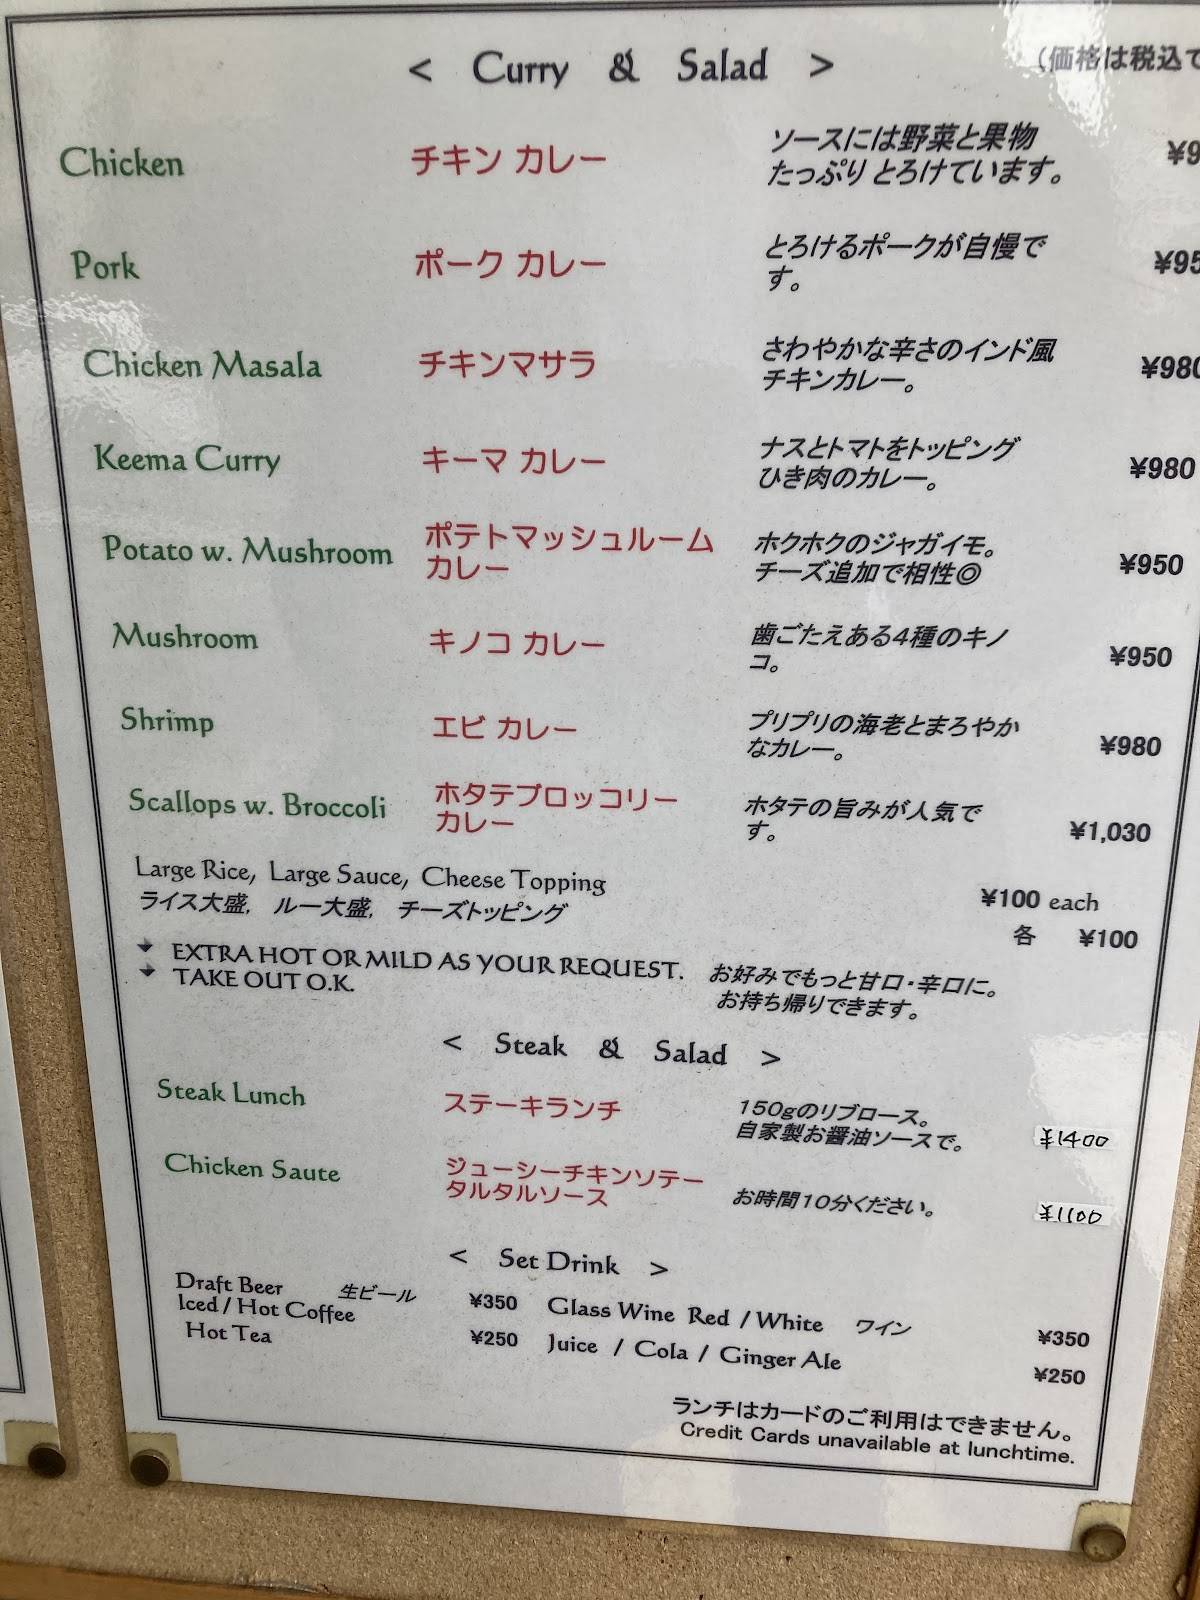 < Curry & Salad >
(価格は税込で
Chicken チキン カレー ソースには野菜と果物
たっぷり とろけています。
Pork ポーク カレー とろけるポークが自慢で
す。
Chicken Masala チキンマサラ さわやかな辛さのインド風
チキンカレー。 ¥980
Keema Curry キーマ カレー ナスとトマトをトッピング
ひき肉のカレー。 ¥980
Potato w. Mushroom ポテトマッシュルーム
カレー ホクホクのジャガイモ。
チーズ追加で相性◎ ¥950
Mushroom キノコ カレー 歯ごたえある4種のキノ
コ。 ¥950
Shrimp エビ カレー プリプリの海老とまろやか
なカレー。 ¥980
Scallops w. Broccoli ホタテブロッコリー
カレー ホタテの旨みが人気で
す。 ¥1,030
Large Rice, Large Sauce, Cheese Topping ¥100 each
ライス大盛, ルー大盛, チーズトッピング 各 ¥100
EXTRA HOT OR MILD AS YOUR REQUEST. お好みでもっと甘口・辛口に。
TAKE OUT O.K. お持ち帰りできます。
< Steak & Salad >
Steak Lunch ステーキランチ 150gのリブロース。
自家製お醤油ソースで。 ¥1400
Chicken Saute ジューシーチキンソテー
タルタルソース お時間10分ください。 ¥1100
< Set Drink >
Draft Beer 生ビール ¥350 Glass Wine Red / White ワイン ¥350
Iced / Hot Coffee
Hot Tea ¥250 Juice / Cola / Ginger Ale ¥250
ランチはカードのご利用はできません。
Credit Cards unavailable at lunchtime.